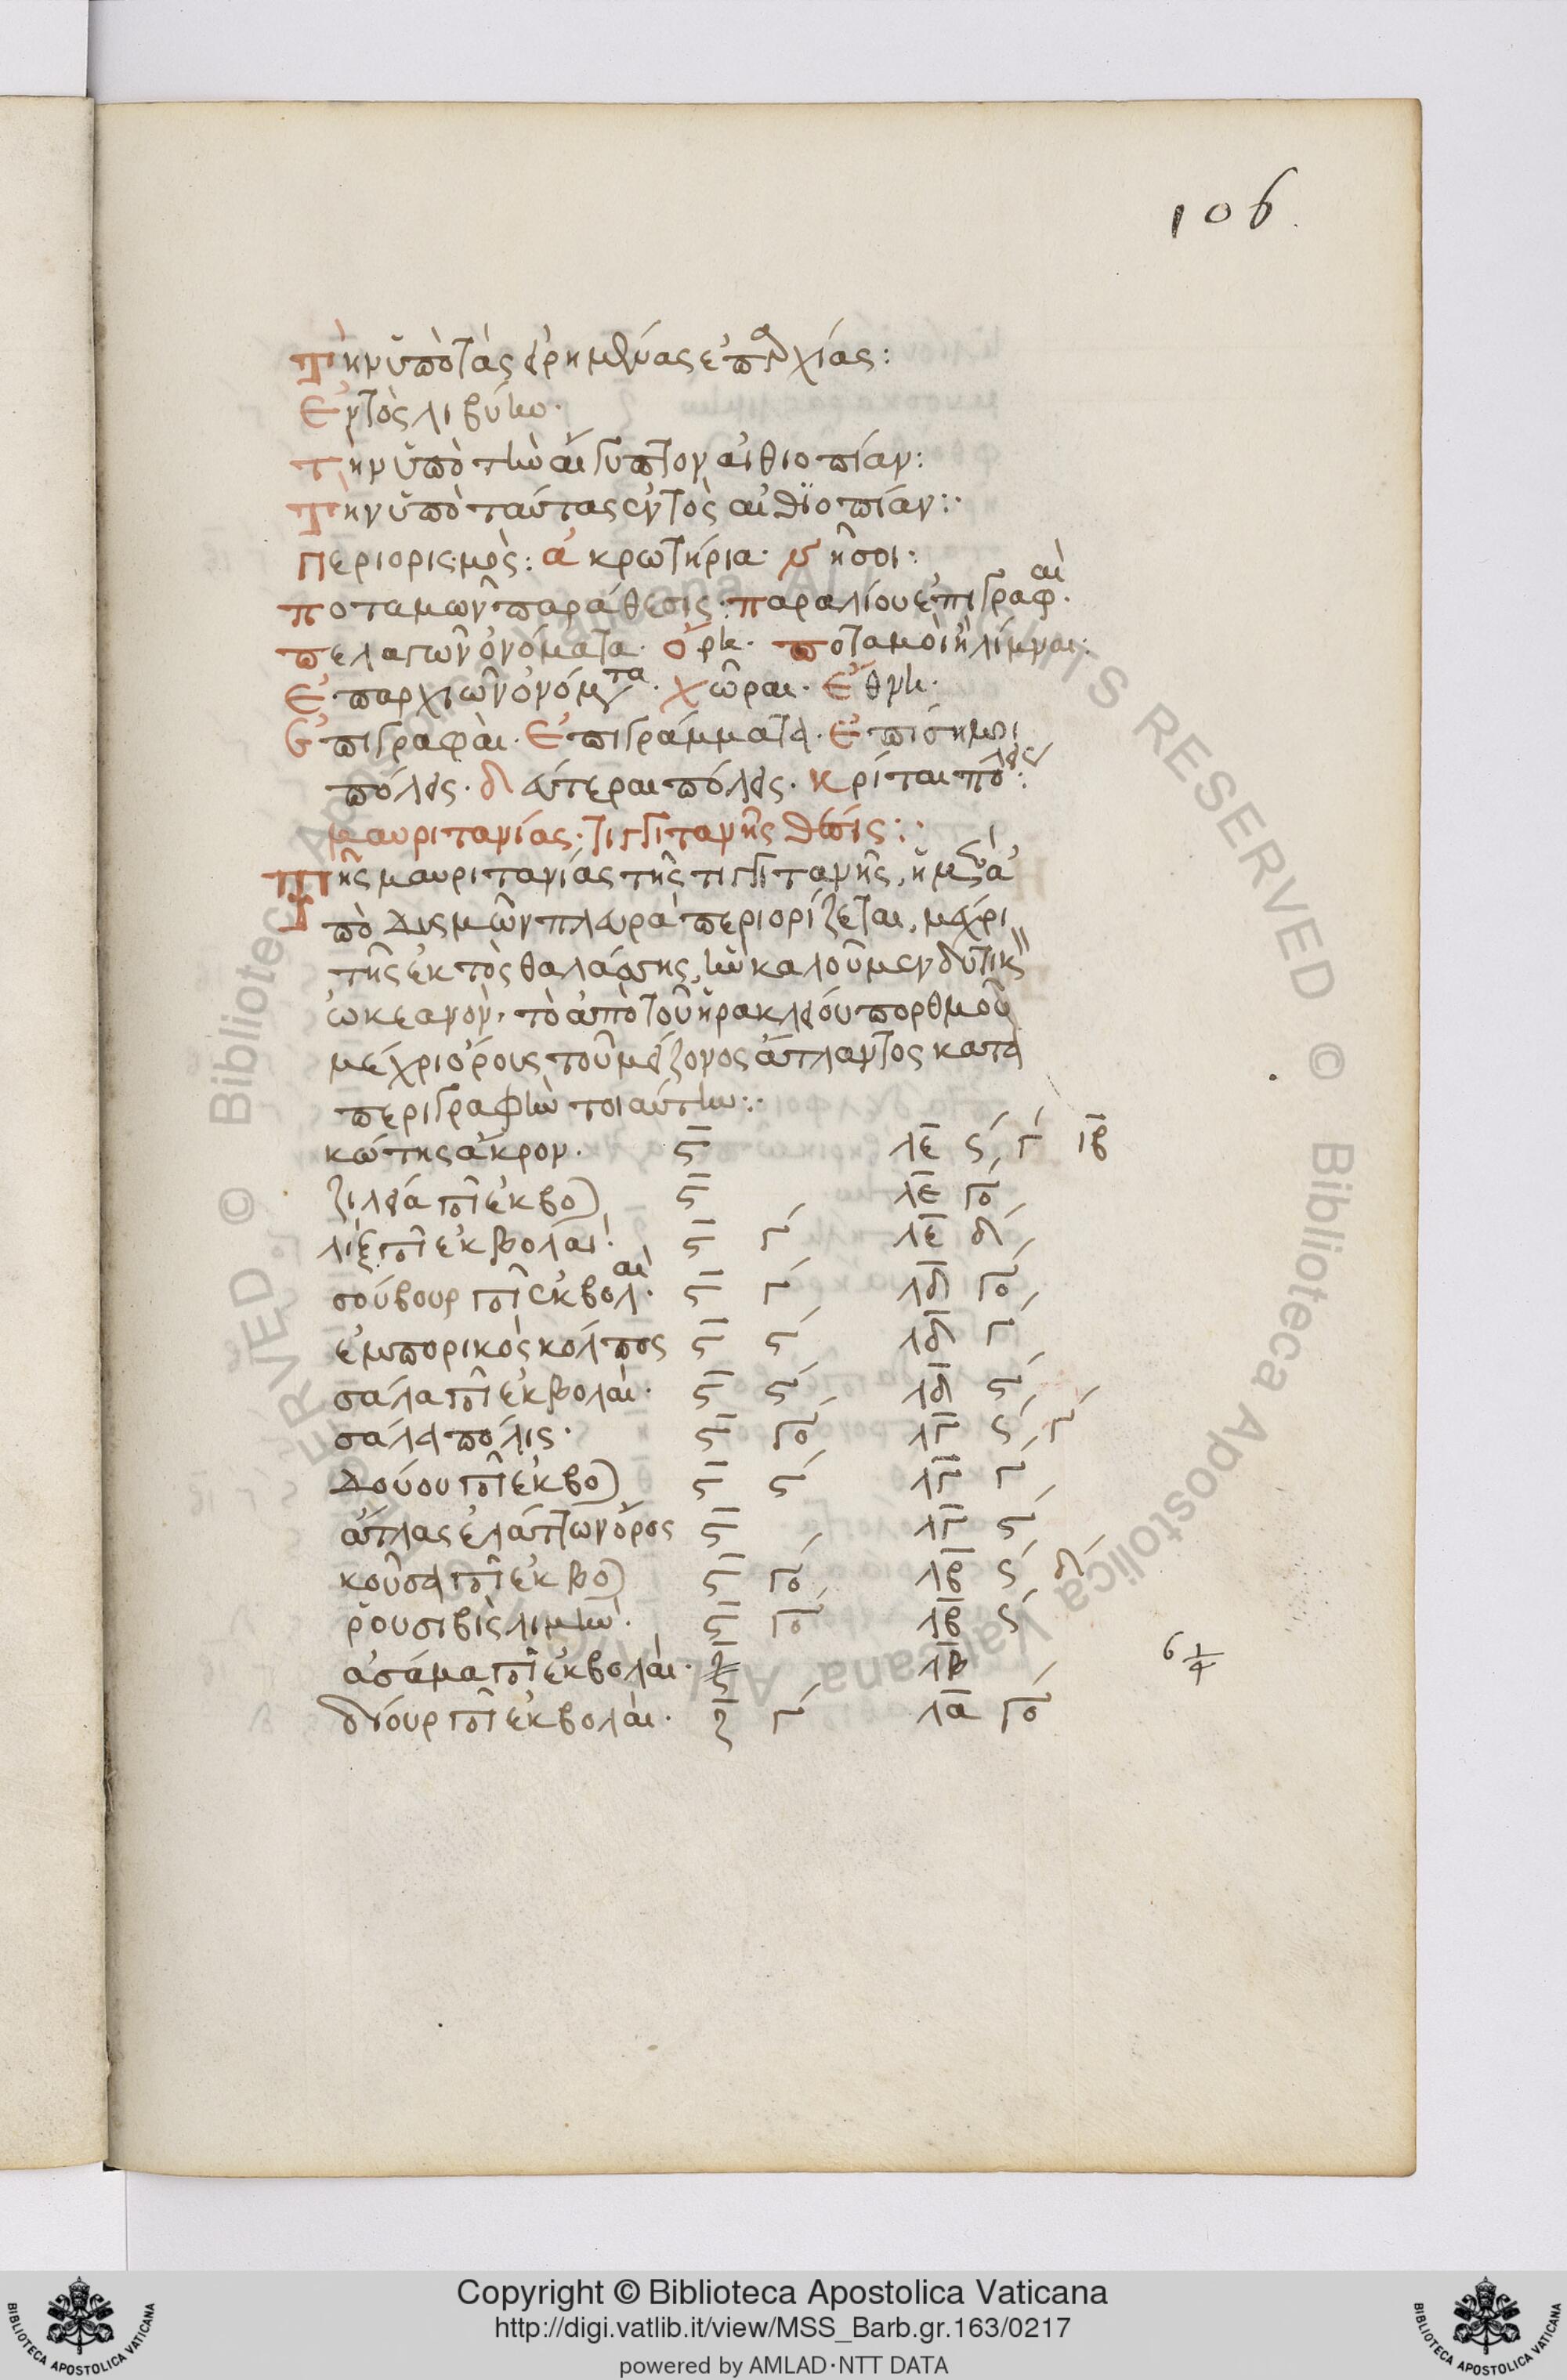 106
Τὴν ὑπὸ τὰς εἰρημένας ἐπαρχίας:
Ἐντὸς λιβύην.
Τὴν ὑπὸ τὴν αἴγυπτον αἰθιοπίαν:
Τὴν ὑπὸ ταύτας ἐντὸς αἰθϊοπίαν:·
Περιορισμὸς: ἀκρωτήρια· νῆσοι:
ποταμῶν παράθεσις· παραλίου ἐπιγραφαὶ.
πελαγῶν ὀνόματα· ὄρη· ποταμοὶ κὴ λίμναι:
Ἐπαρχιῶν ὀνόματα· χῶραι· ἔθνη·
Ἐπιγραφαὶ· Ἐπιγράμματα· Ἐπίσημοι
πόλεις· δεύτεραι πόλεις· κρίται πόλεις:
μαυριτανίας· τιγγιτανῆς θέσις:·
Τῆς μαυριτανίας τῆς τιγγιτανῆς, ἡ μὲν ἀ
πὸ δυσμῶν πλευρὰ περιορίζεται, μέχρι
τῆς ἐκτὸς θαλάσσης, ἣν καλοῦμεν δυτικὸν
ὠκεανὸν, τὸ ἀπὸ τοῦ ἡρακλείου πορθμοῦ
μέχρι ὄρους τοῦ μείζονος ἄτλαντος κατὰ
περιγραφὴν τοιαύτην:·
κώτης ἄκρον. ϛ λε ϛ γ ιβ
ζιλεία ποτ ἐκβο ϛ λε γο
λὶξ ποτ ἐκβολαί. ϛ γ λε δ
σούβουρ ποτ ἐκβολαὶ. ϛ γ λδ γο
ἐμπορικὸς κόλπος ϛ ϛ λδ γ
σάλα ποτ ἐκβολαὶ. ϛ ϛ λδ ϛ
σάλα πόλις. ϛ γο λγ ϛ γ
Δούου ποτ ἐκβο ϛ ϛ λγ γ
ἄτλας ἐλάττων ὄρος ϛ λγ ϛ
κοῦσα ποτ ἐκβο ϛ γο λβ ϛ δ
ῥουσιβὶς λιμὴν. ϛ γο λβ ϛ
ἀσάμα ποτ ἐκβολαὶ. ζ λβ 6 1/4
διούρ ποτ ἐκβολαὶ. ζ γ λα γο
Copyright © Biblioteca Apostolica Vaticana
http://digi.vatlib.it/view/MSS_Barb.gr.163/0217
powered by AMLAD·NTT DATA